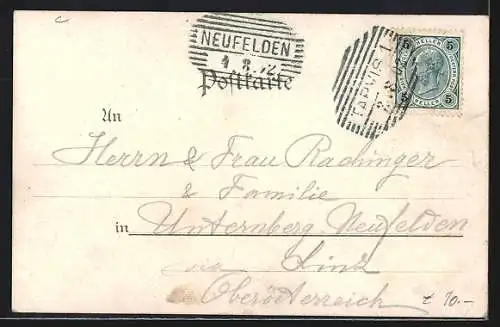 NEUFELDEN
Postkarte
TARVIS 1
5 HELLER 5
5 HELLER 5
An
Herrn & Frau Rachinger
& Familie
in Unternberg Neufelden
via Linz
Oberösterreich